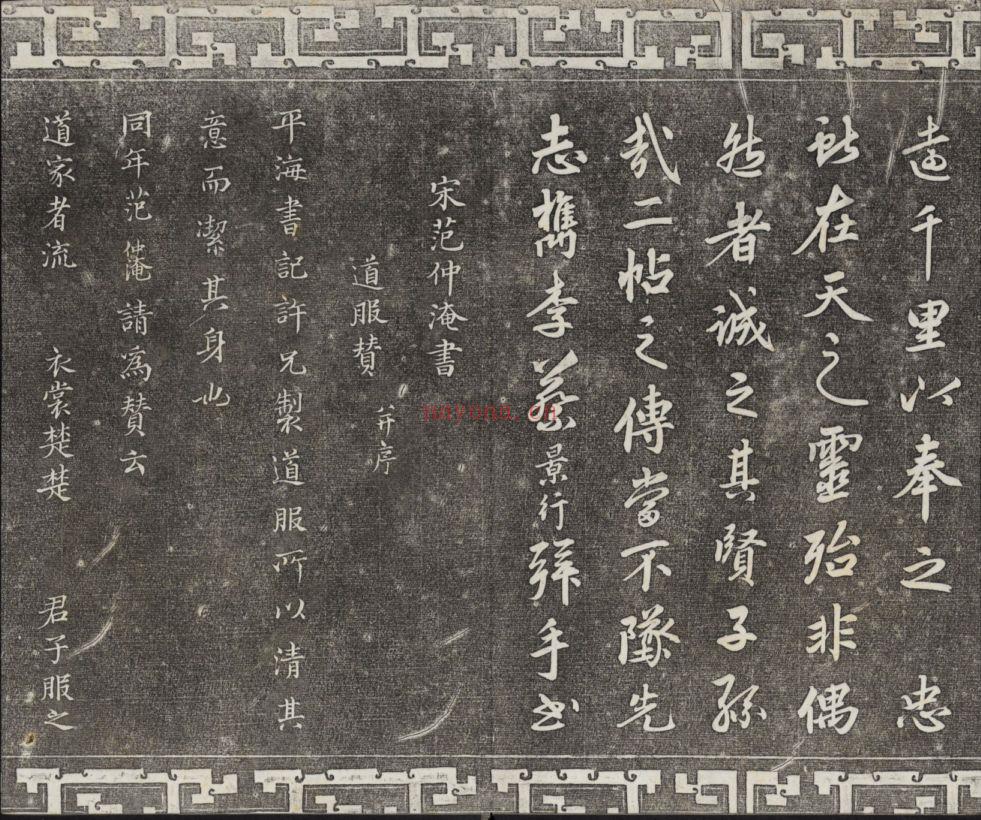 遠千里以奉之 忠
獻在天之靈殆非偶
然者誠之其賢子孫
哉二帖之傳當不墜先
志檇李蔡景行拜手書
宋范仲淹書
道服贊 并序
平海書記許兄製道服所以清其
意而潔其身也
同年范仲淹請為贊云
道家者流 衣裳楚楚 君子服之
nayona.cn